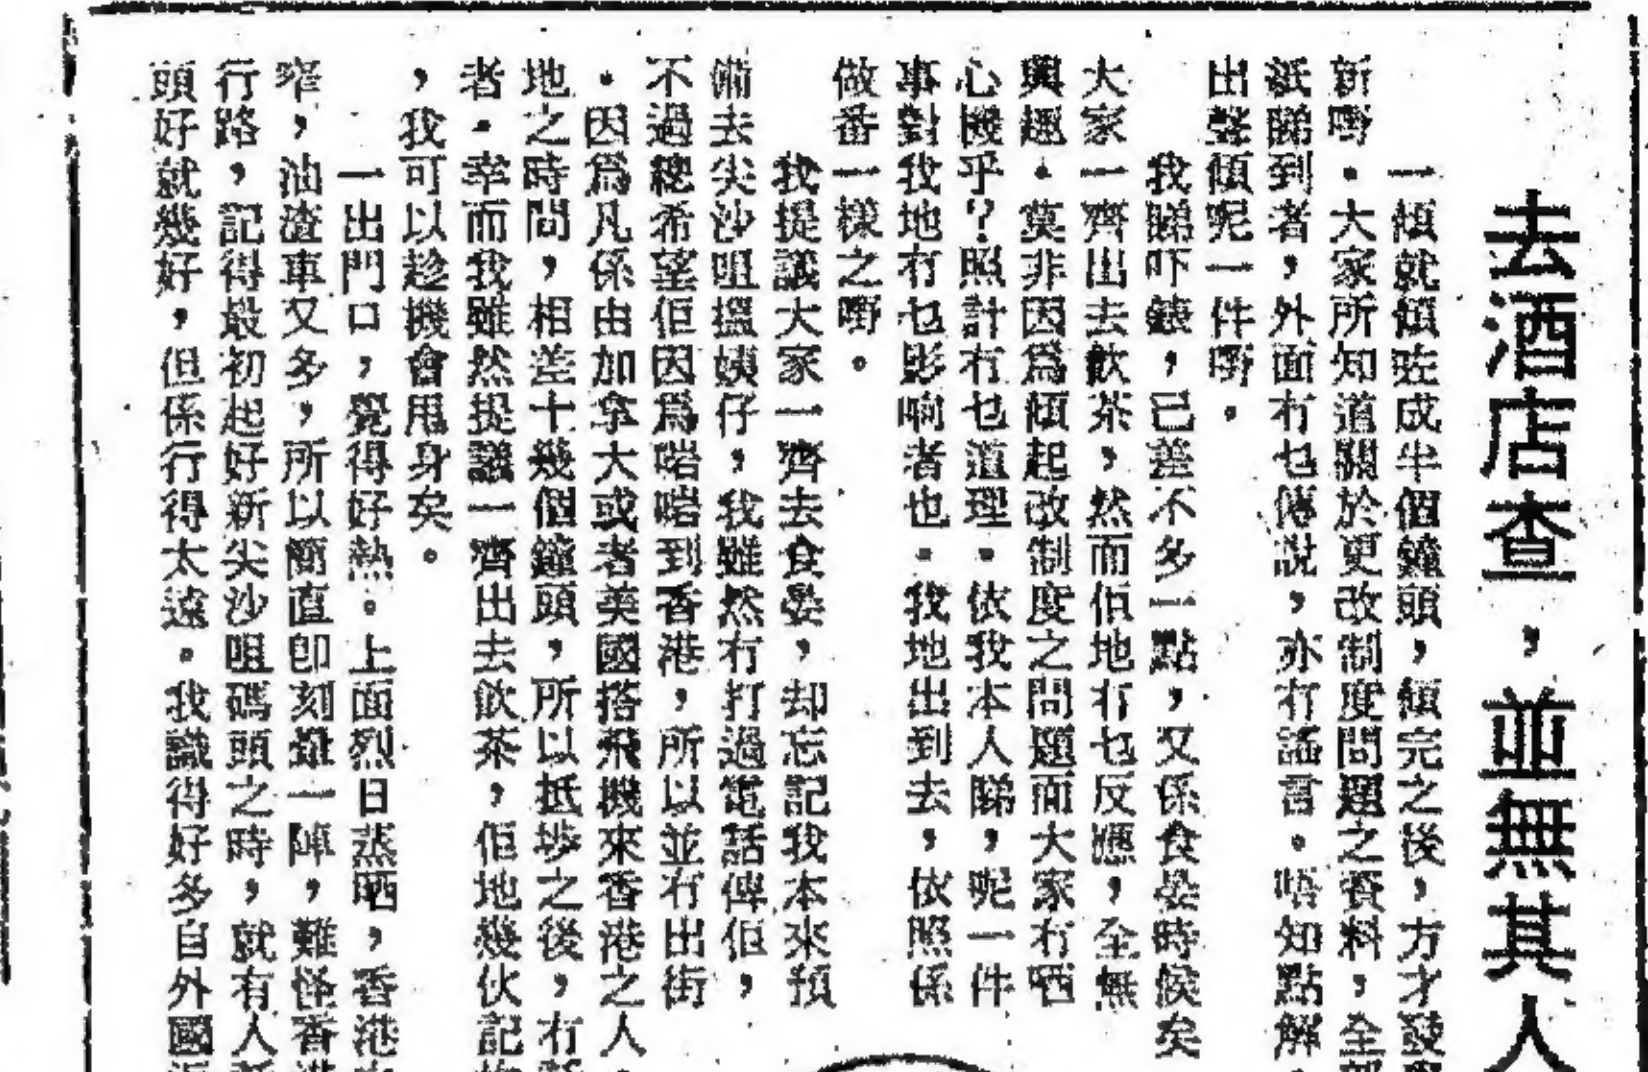 去酒店查，並無其人
一傾就傾咗成半個鐘頭，傾完之後，方才發
新嘢。大家所知道關於更改制度問題之資料，全部
祇睇到者，外面冇乜傳說，亦冇謠言。唔知點解，
出聲傾呢一件嘢。
我睇吓錶，已差不多一點，又係食晏時候矣
大家一齊出去飲茶，然而佢地冇乜反應，全無
興趣。莫非因為傾起改制度之問題而大家冇晒
心機乎？照計冇乜道理。依我本人睇，呢一件
事對我地冇乜影响者也。我地出到去，依照係
做番一樣之嘢。
我提議大家一齊去食晏，却忘記我本來預
備去尖沙咀搵姨仔，我雖然冇打過電話俾佢，
不過總希望佢因為啱啱到香港，所以並冇出街
。因為凡係由加拿大或者英國搭飛機來香港之人，
地之時間，相差十幾個鐘頭，所以抵埗之後，冇
者。幸而我雖然提議一齊出去飲茶，佢地幾伙記
，我可以趁機會甩身矣。
一出門口，覺得好熱。上面烈日蒸晒，香港
窄，油渣車又多，所以簡直即刻暈一陣，難怪香港
行路，記得最初起好新尖沙咀碼頭之時，就有人
頭好就幾好，但係行得太遠。我識得好多自外國返